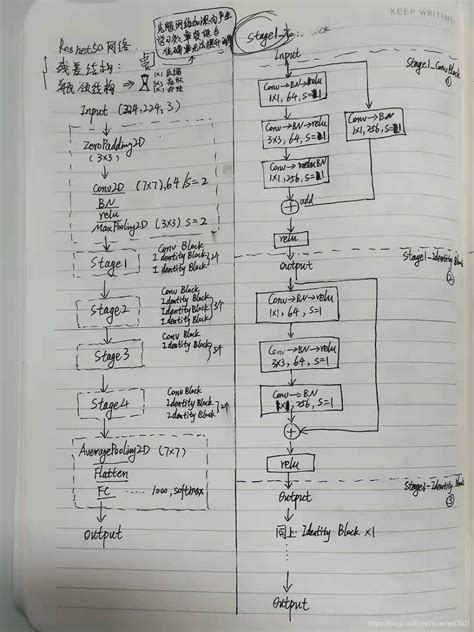 KEEP WRITING
Resnet50网络
残差结构:
Input (224,224,3)
ZeroPadding2D
(3×3)
Conv2D (7×7),64/S=2
BN
relu
MaxPooling2D (3×3) S=2
Stage1
Conv Block
Identity Block
Identity Block
Stage2
Conv Block
Identity Block
Identity Block
Identity Block
Stage3
Conv Block
Identity Block
Stage4
Conv Block
Identity Block
Identity Block
AveragePooling2D (7×7)
Flatten
FC 1000, softmax
Output
Stage1
Stage1-Conv Block
①
Conv→BN→relu
1×1, 64, S=1
Conv→BN→relu
3×3, 64, S=1
Conv→BN
1×1, 256, S=1
Conv→BN
1×1, 256, S=1
add
relu
Output
Stage1-Identity Block
②
Conv→BN→relu
1×1, 64, S=1
Conv→BN→relu
3×3, 64, S=1
Conv→BN
1×1, 256, S=1
relu
Output
Stage1-Identity Block
③
同上 Identity Block ×1
Output